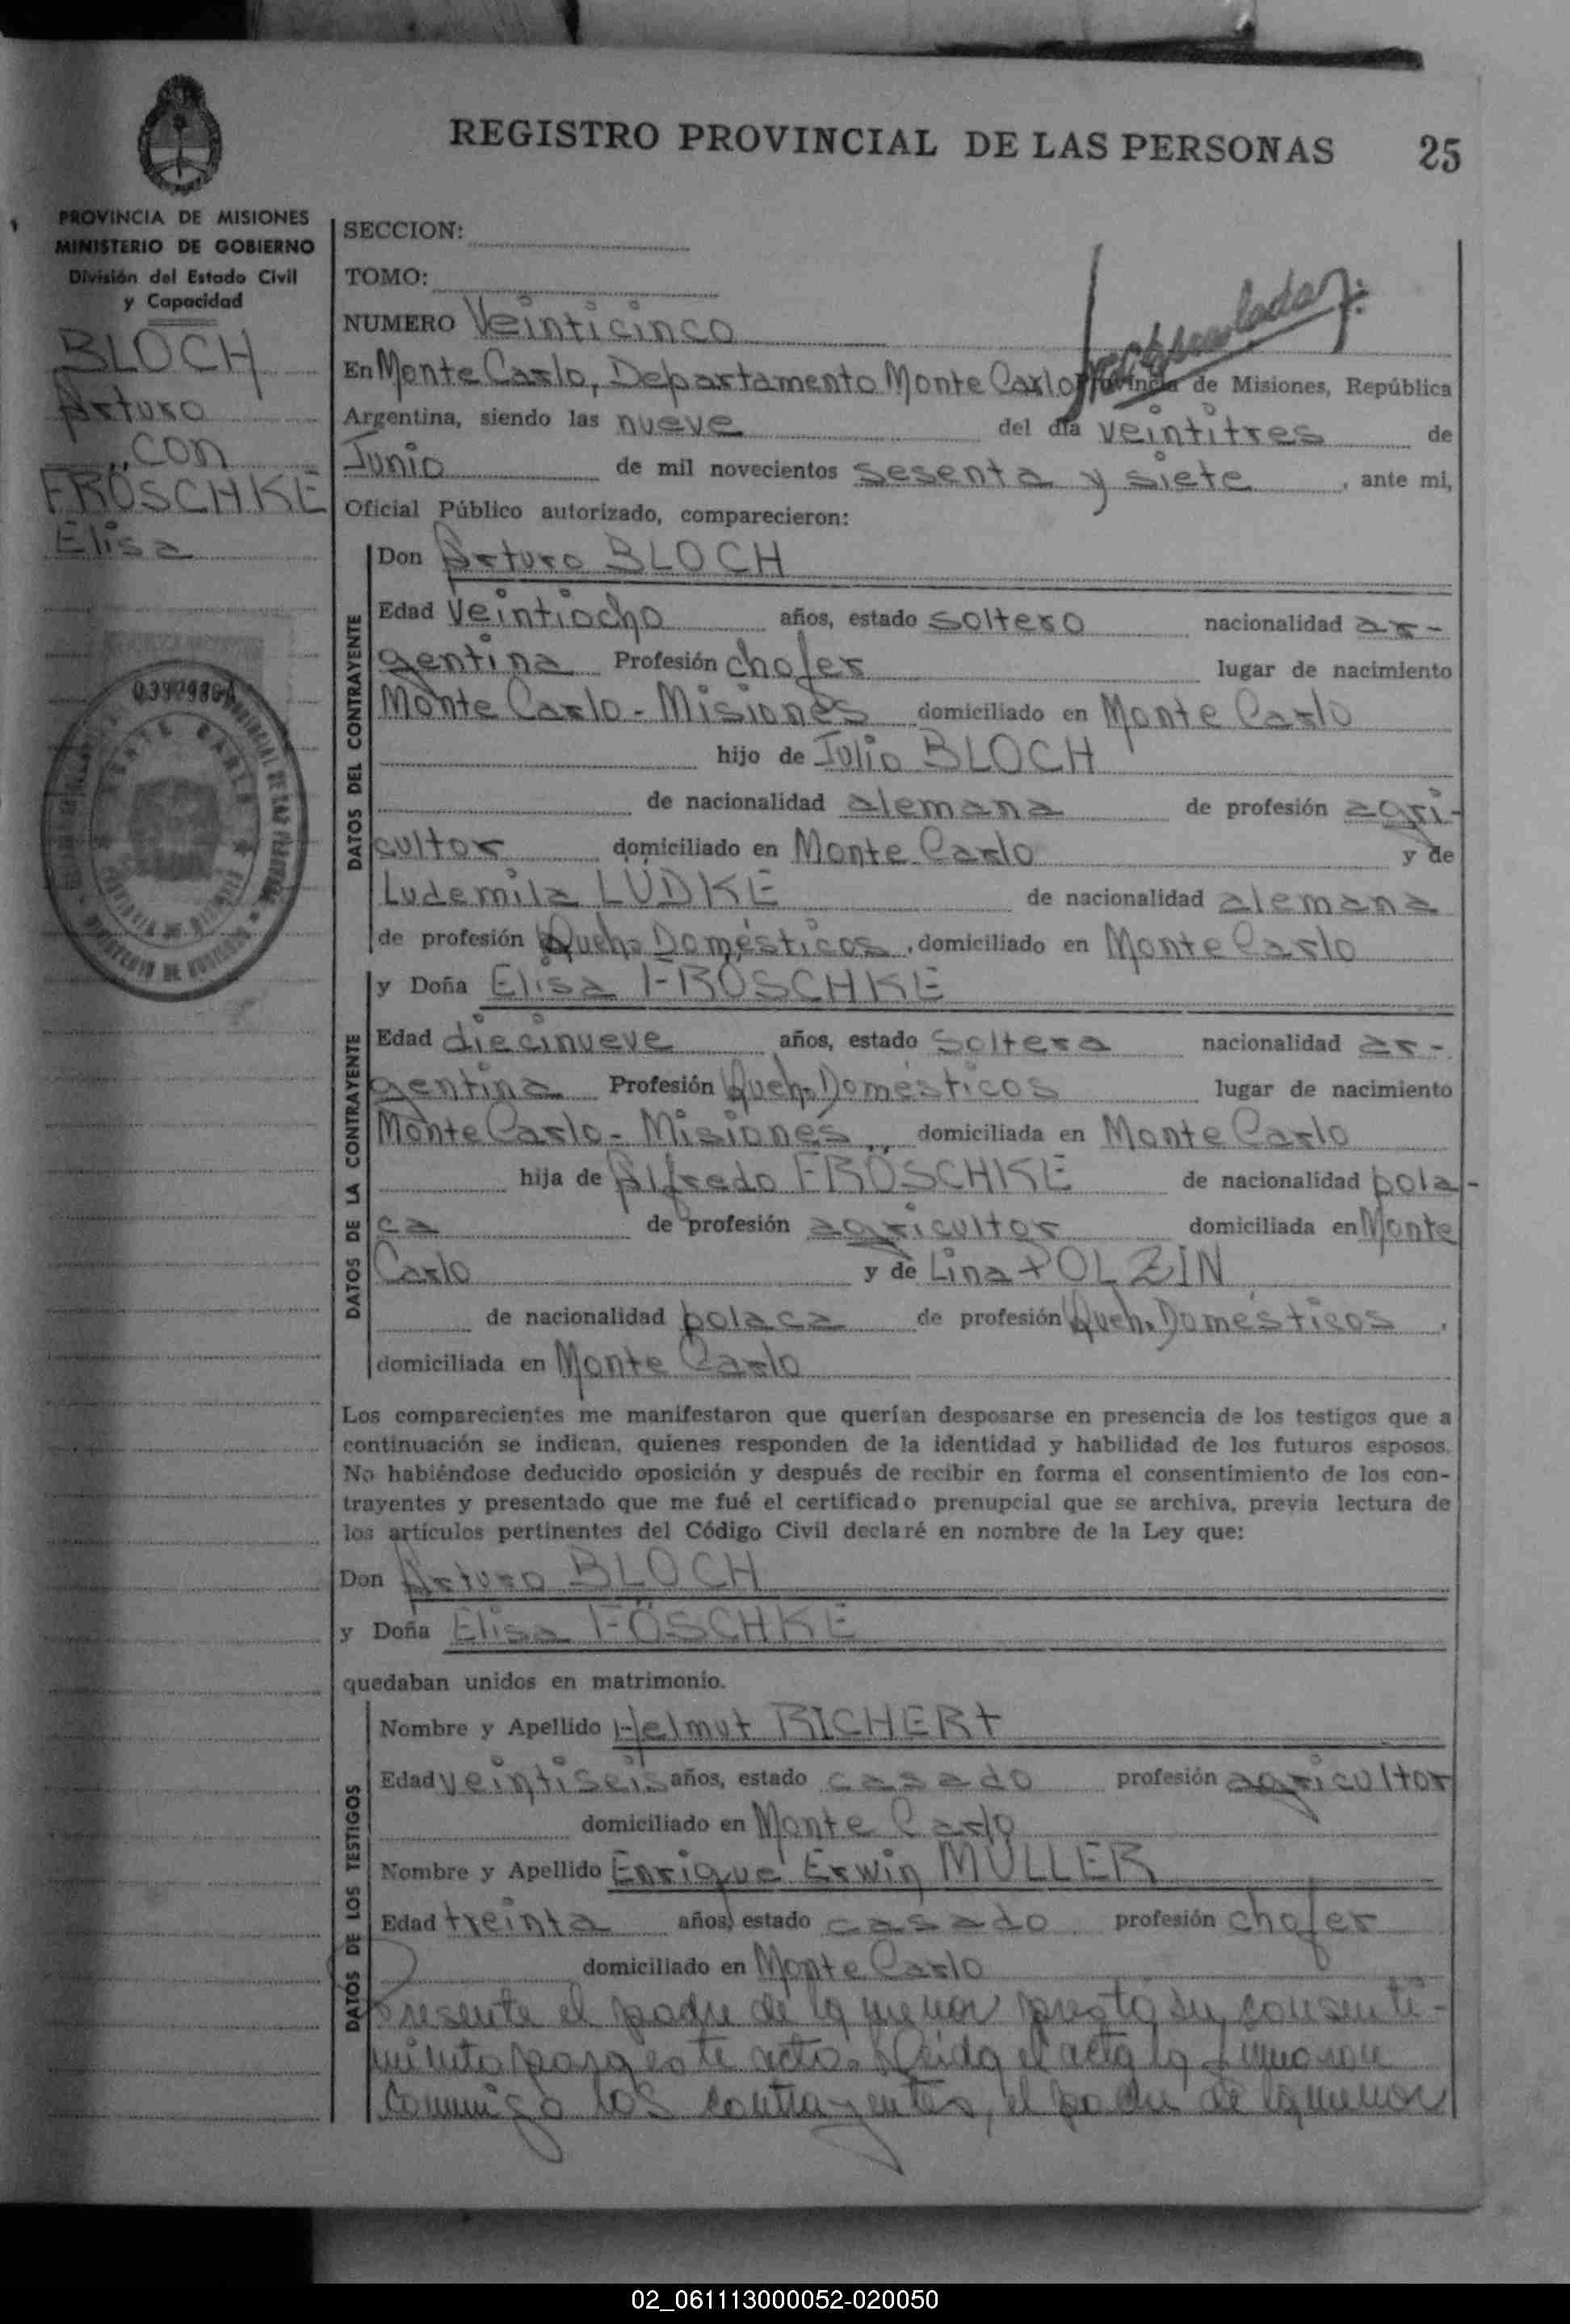 REGISTRO PROVINCIAL DE LAS PERSONAS 25
PROVINCIA DE MISIONES
MINISTERIO DE GOBIERNO
División del Estado Civil
y Capacidad
BLOCH
Arturo
con
FRÖSCHKE
Elisa
SECCION:
TOMO:
NUMERO Veinticinco
En Monte Carlo, Departamento Monte Carlo Provincia de Misiones, República
Argentina, siendo las nueve del día veintitres de
Junio de mil novecientos sesenta y siete, ante mi,
Oficial Público autorizado, comparecieron:
DATOS DEL CONTRAYENTE
Don Arturo BLOCH
Edad Veintiocho años, estado soltero nacionalidad ar-
gentina Profesión chofer lugar de nacimiento
Monte Carlo - Misiones domiciliado en Monte Carlo
hijo de Julio BLOCH
de nacionalidad alemana de profesión agri-
cultor domiciliado en Monte Carlo y de
Ludemila LÜDKE de nacionalidad alemana
de profesión Queh. Domésticos, domiciliado en Monte Carlo
DATOS DE LA CONTRAYENTE
y Doña Elisa FRÖSCHKE
Edad diecinueve años, estado Soltera nacionalidad ar-
gentina Profesión Queh. Domésticos lugar de nacimiento
Monte Carlo - Misiones domiciliada en Monte Carlo
hija de Alfredo FRÖSCHKE de nacionalidad pola-
ca de profesión agricultor domiciliada en Monte
Carlo y de Lina POLZIN
de nacionalidad polaca de profesión Queh. Domésticos,
domiciliada en Monte Carlo
Los comparecientes me manifestaron que querían desposarse en presencia de los testigos que a
continuación se indican, quienes responden de la identidad y habilidad de los futuros esposos.
No habiéndose deducido oposición y después de recibir en forma el consentimiento de los con-
trayentes y presentado que me fué el certificado prenupcial que se archiva, previa lectura de
los artículos pertinentes del Código Civil declaré en nombre de la Ley que:
Don Arturo BLOCH
y Doña Elisa FÖSCHKE
quedaban unidos en matrimonio.
DATOS DE LOS TESTIGOS
Nombre y Apellido Helmut RICHERT
Edad veintiseis años, estado casado profesión agricultor
domiciliado en Monte Carlo
Nombre y Apellido Enrique Erwin MÜLLER
Edad treinta años, estado casado profesión chofer
domiciliado en Monte Carlo
Presente el padre de la menor presta su consenti-
miento para este acto. Leida el acta la firmaron
conmigo los contrayentes, el padre de la menor
02_061113000052-020050